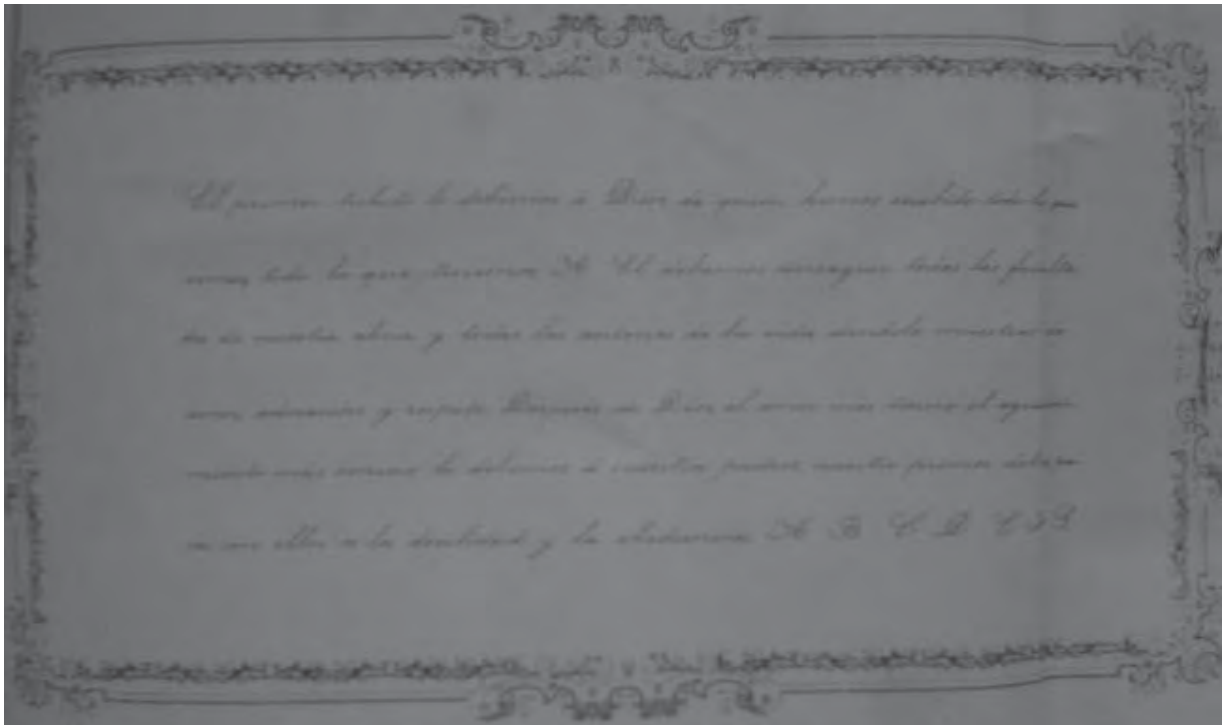 El primer tributo lo debemos á Dios de quien hemos recibido todo lo que
somos, todo lo que tenemos A El debemos consagrar todas las faculta
des de nuestra alma y todas las acciones de la vida
amor, adoración y respeto Después de Dios el amor más tierno el agrade
cimiento más lo debemos á nuestros padres nuestro primer deber
con ellos es la docilidad y la obediencia A B C D E F G